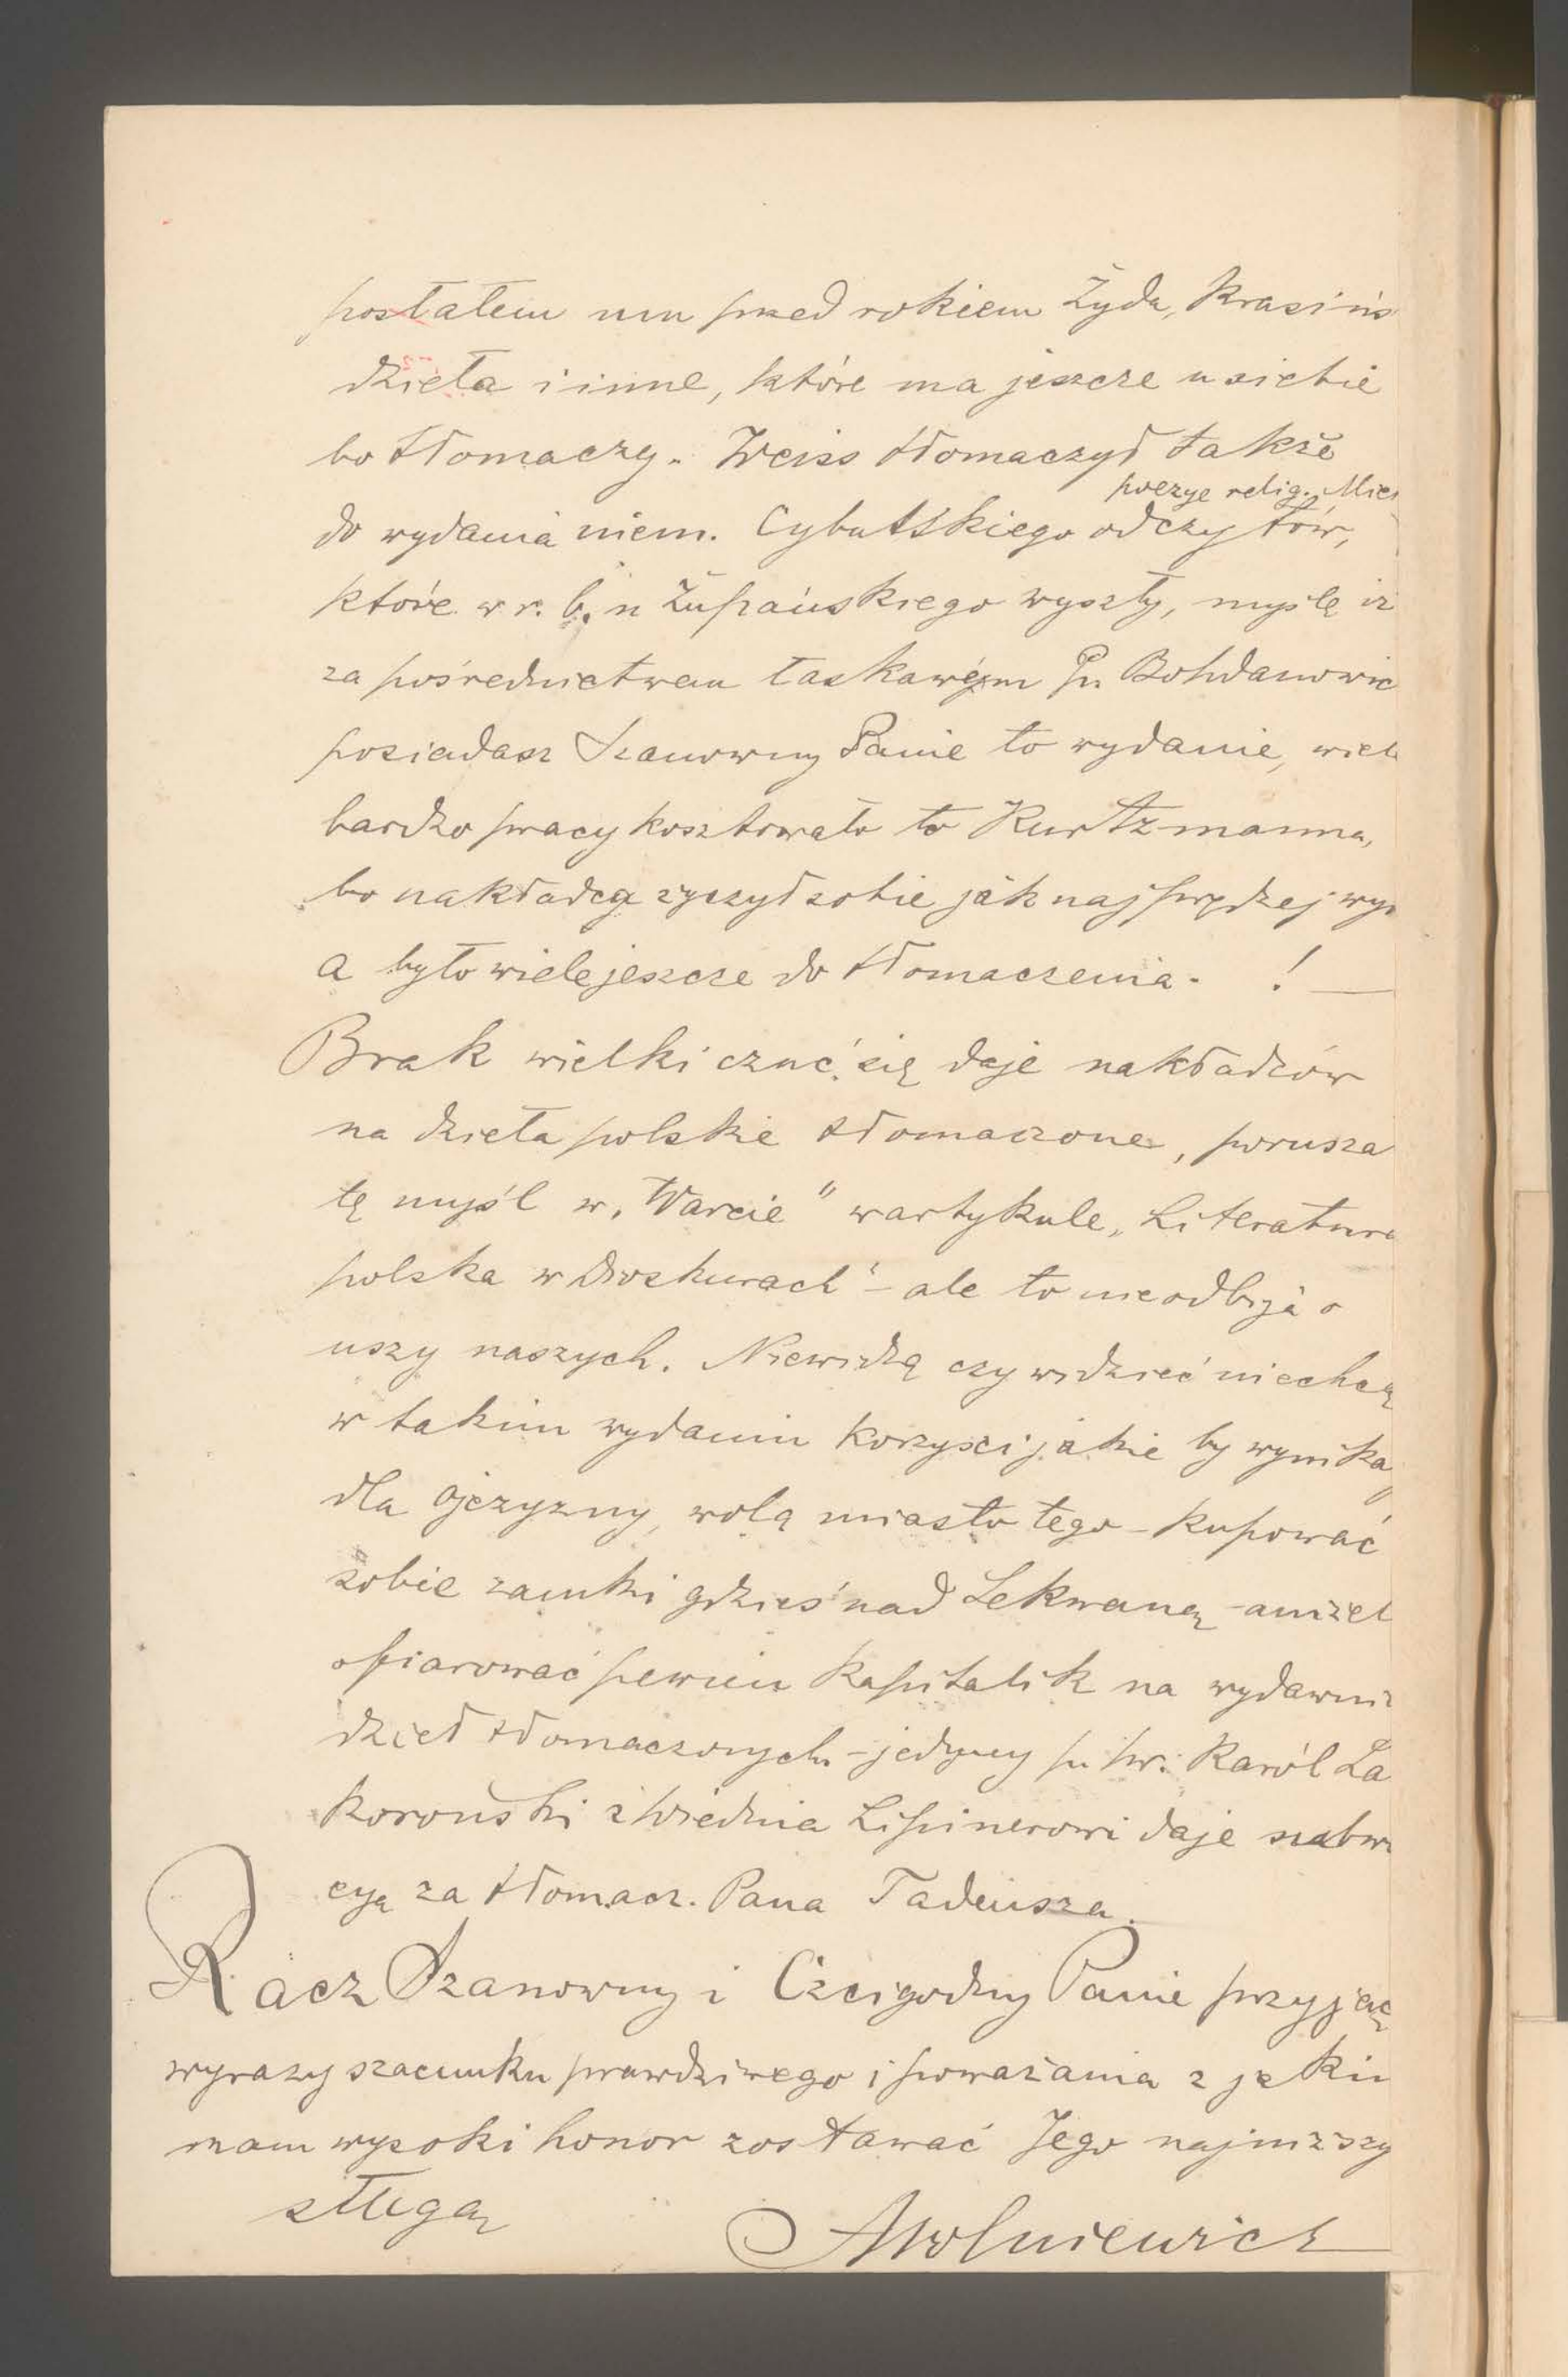 posłałem mu przed rokiem Żyda, Krasińs
dzieła i inne, które ma jeszcze u siebie
bo tłomaczy. Weiss tłomaczył także
poezye relig. Mic
do wydania niem. Cybulskiego odczytów,
które w r. b. u Żupańskiego wyszły, myślę iż
za pośrednictwem łaskawém Pn Bohdanowic
posiadasz Szanowny Panie to wydanie, wiele
bardzo pracy kosztowało to Kurtzmanna,
bo nakładca życzył sobie jak najprędzej wyd
a było wiele jeszcze do tłomaczenia. ! —
Brak wielki czuć się daje nakładców
na dzieła polskie tłomaczone, porusza
tę myśl w „Warcie" w artykule „Literatura
polska w Dioskurach" – ale to nie odbija o
uszy naszych. Niewidzą czy widzieć niechcą
w takim wydaniu korzyści jakie by wynika
dla Ojczyzny, wolą miasto tego – kupować
sobie zamki gdzieś nad Sekwaną – aniżel
ofiarować pewien kapitalik na wydawni
dzieł tłomaczonych – jedyny Karól La
koroński z Wiednia Lipinerowi daje subw
cyą za tłomacz. Pana Tadeusza.
Racz Szanowny i Czcigodny Panie przyjąć
wyrazy szacunku prawdziwego i poważania z jakim
mam wysoki honor zostawać Jego najniższy
sługą
AWolniewicz